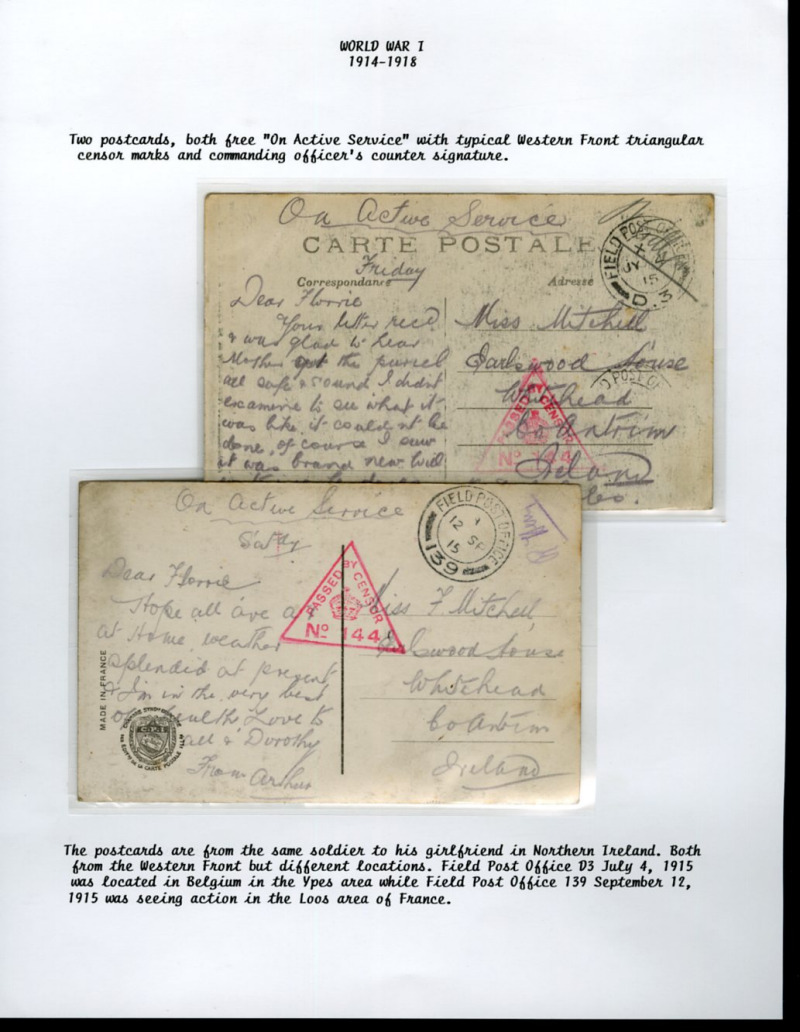 WORLD WAR I
1914-1918
Two postcards, both free "On Active Service" with typical Western Front triangular
censor marks and commanding officer's counter signature.
On Active Service
CARTE POSTALE
Friday
Correspondance
Adresse
Dear Florrie
Your letter recd
& was glad to hear
Mother got the parcel
all safe & sound I didnt
examine to see what it
was like, it could nt be
done, of course I saw
it was brand new
Miss Mitchell
Earlswood House
Whitehead
Co Antrim
Ireland
FIELD POST OFFICE
JY
15
D.3
D POST OF
PASSED BY CENSOR
No 144
On Active Service
Satdy
Dear Florrie
Hope all are
at Home, weather
splendid at present
& I'm in the very best
of health Love to
all & Dorothy
From Arthur
Miss F. Mitchell,
Earlswood House
Whitehead
Co Antrim
Ireland
FIELD POST OFFICE
12 SP
15
139
PASSED BY CENSOR
No 144
MADE IN FRANCE
The postcards are from the same soldier to his girlfriend in Northern Ireland. Both
from the Western Front but different locations. Field Post Office D3 July 4, 1915
was located in Belgium in the Ypes area while Field Post Office 139 September 12,
1915 was seeing action in the Loos area of France.